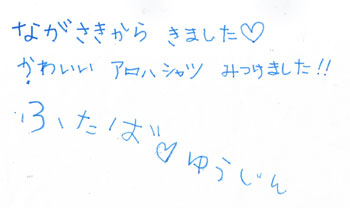 ながさきから きました♡
かわいい アロハシャツ みつけました!!
ふたば♡ゆうじん